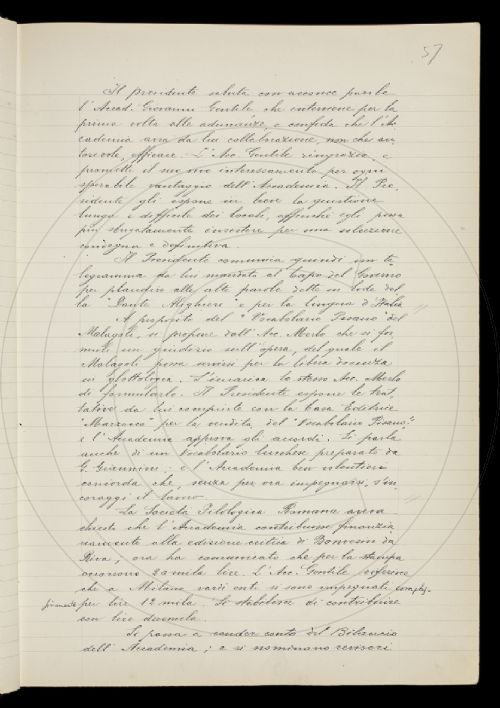 57
Il Presidente saluta con accorce parole
l'Accad. Giovanni Gentile, che interviene per la
prima volta alle adunanze, e confida che l'Ac
cademia avrà da lui collaborazione, non che au
torevole, efficace. L'Acc. Gentile ringrazia, e
promette il suo vivo interessamento per ogni
sperabile vantaggio dell'Accademia. Il Pre,
sidente gli espone in breve la questione
lunga e difficile dei locali, affinché egli possa
più sicuramente investire per una soluzione
condegna e definitiva.
Il Presidente comunica quindi un te
legramma da lui mandato al Capo del Governo
per plaudire alle alte parole dette in lode del
la "Dante Alighieri" e per la lingua d'Italia
A proposito del "Vocabolario Pisano" del
Malagoli, si propone dall'Acc. Merlo che si for
muli un giudizio sull'opera, del quale il
Malagoli possa servirsi per la libera docenza
in Glottologia. S'incarica lo stesso Acc. Merlo
di formularlo. Il Presidente espone le trat
tative da lui compiute con la Casa Editrice
"Marzocco" per la vendita del "Vocabolario Pisano";
e l'Accademia approva gli accordi. Si parla
anche di un Vocabolario lucchese preparato da
G. Giannini; e l'Accademia ben volentieri
concorda che, senza per ora impegnarsi, s'in
coraggi il lavoro.
La Società Filologica Romana aveva
chiesto che l'Accademia contribuisse finanzia
riamente alla edizione critica di Bonvesin da
Riva; ora ha comunicato che per la stampa
occorrono 20 mila lire. L'Acc. Gentile riferisce
che a Milano vari enti si sono impegnati comples-
sivamente per lire 12 mila. Si stabilisce di contribuire
con lire duemila.
Si passa a render conto del Bilancio
dell'Accademia; e si nominano revisori